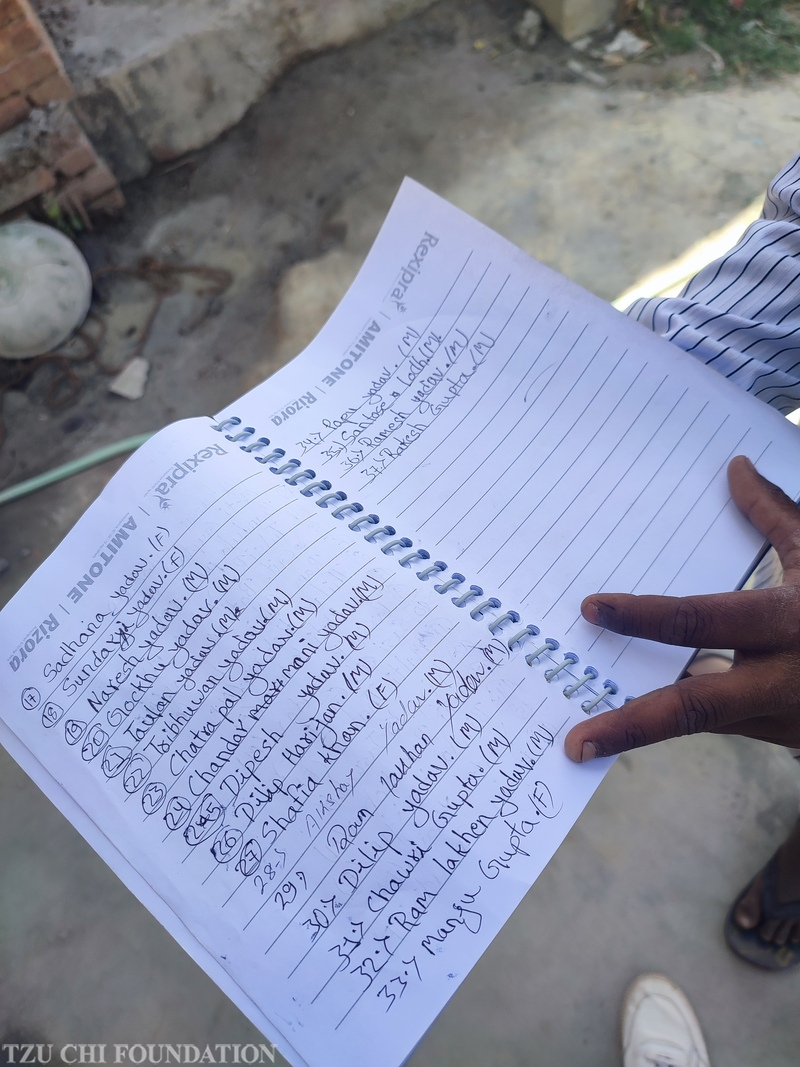 Rexipra | AMITONE | Rizora
34.> yadav. (M)
35) Lodh. (M)
36.> Ramesh yadav. (M)
37.> Rakesh Gupta. (M)
Rexipra | AMITONE | Rizora
17 Sadhana yadav. (F)
18 yadav. (F)
19 Naresh yadav. (M)
20 yadav. (M)
21 yadav. (M)
22 Tribhuwan yadav. (M)
23 Chatra pal yadav. (M)
24 Chandar mani yadav. (M)
25 Dipesh yadav. (M)
26 Dilip Harijan. (M)
27 Khan. (F)
28.> Akshay yadav. (M)
29.> Ram yadav. (M)
30.> Dilip yadav. (M)
31.> Gupta. (M)
32.> Ram lakhen yadav. (M)
33.> Gupta. (F)
TZU CHI FOUNDATION